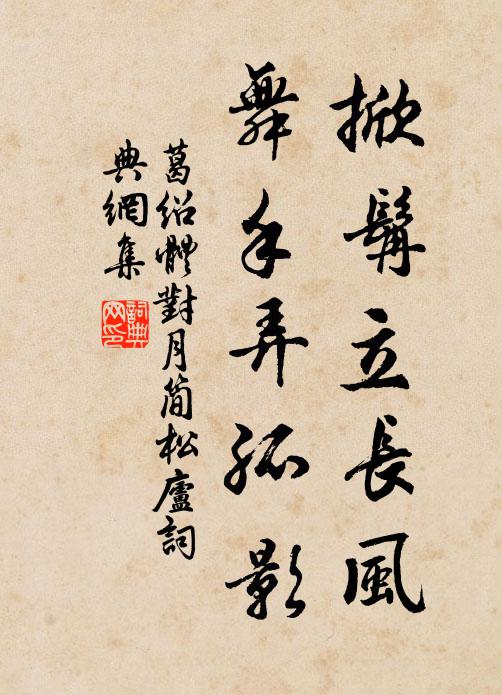 掀髯立長風
舞手弄孤影
葛紹體對月簡松廬詞
典網集
詞典
网印